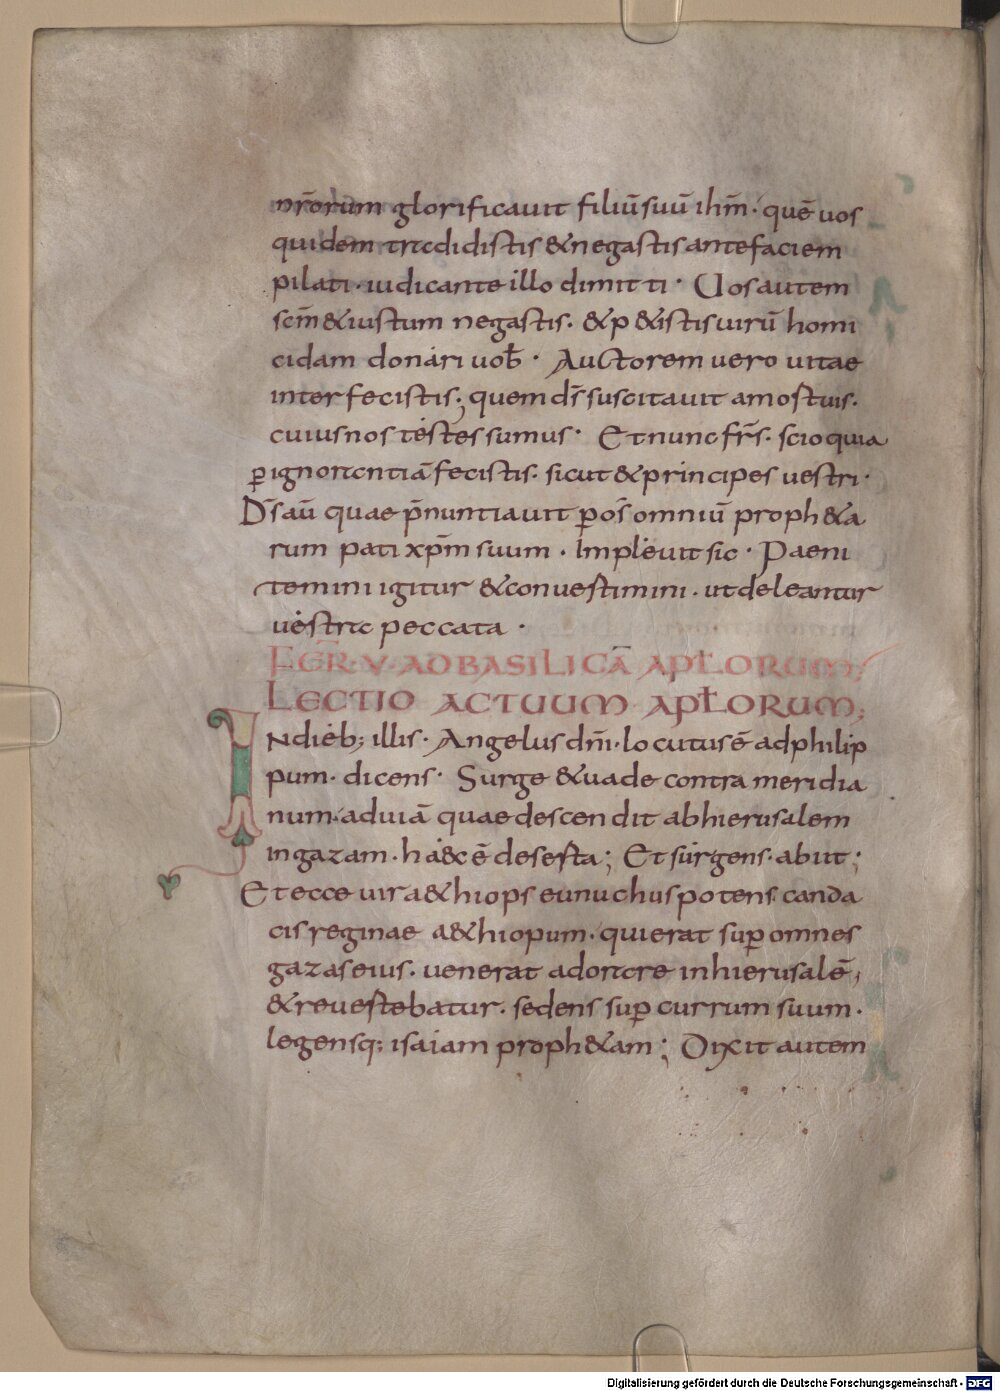 nr̄orum glorificauit filiū suū ihm̄· quē uos
quidem tradidistis & negastis ante faciem
pilati· iudicante illo dimitti· Uos autem
scm̄ & iustum negastis· & p&istis uirū homi
cidam donari uob̄· Auctorem uero uitae
interfecistis; quem ds̄ suscitauit a mortuis·
cuius nos testes sumus· Et nunc frs̄· scio quia
ꝑ ignorantiā fecistis· sicut & principes uestri·
Ds̄ aū quae p̄nuntiauit ꝑ os̄ omniū proph&a
rum pati xp̄m suum· Impleuit sic· Paeni
temini igitur & conuertimini· ut deleantur
uestra peccata·
FER̄· V· AD BASILICĀ APŁORUM;
LECTIO ACTUUM APŁORUM;
INdieb; illis· Angelus dnī· locutus ē ad philip
pum· dicens· Surge & uade contra meridia
num· ad uiā quae descendit ab hierusalem
in gazam· haec ē deserta; Et surgens· abiit;
Et ecce uir a&hiops eunuchus potens canda
cis reginae a&hiopum· qui erat suꝑ omnes
gazas eius· uenerat adorare in hierusalē;
& reuertebatur· sedens suꝑ currum suum·
legensq; isaiam proph&am; Dixit autem
Digitalisierung gefördert durch die Deutsche Forschungsgemeinschaft - DFG